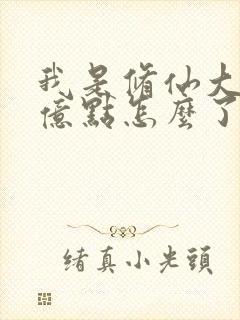 我是修仙大
億點怎麼了
緒真小光頭